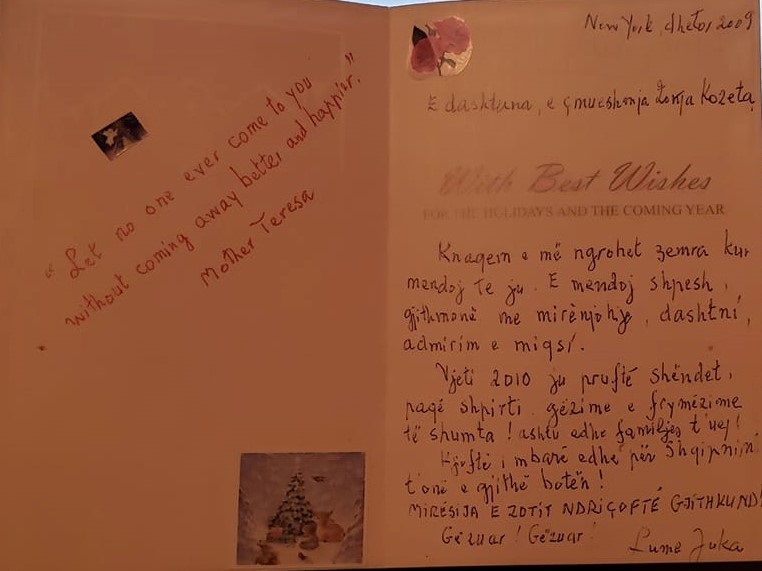 "Let no one ever come to you
without coming away better and happier."
Mother Teresa
New York, dhetor 2009
E dashtuna, e çmueshmja Zonja Kozeta,
With Best Wishes
FOR THE HOLIDAYS AND THE COMING YEAR
Knaqem e më ngrohet zemra kur
mendoj te ju. E mendoj shpesh,
gjithmonë me mirënjohje, dashtní,
admirim e miqsí.
Vjeti 2010 ju pruftë shëndet,
paqë shpirti, gëzime e frymëzime
të shumta! ashtu edhe familjes t'uej!
Kjoftë i mbarë edhe për Shqipninë
t'onë e gjithë botën!
MIRËSIJA E ZOTIT NDRIÇOFTË GJITHKUND!
Gëzuar! Gëzuar!
Lume Juka